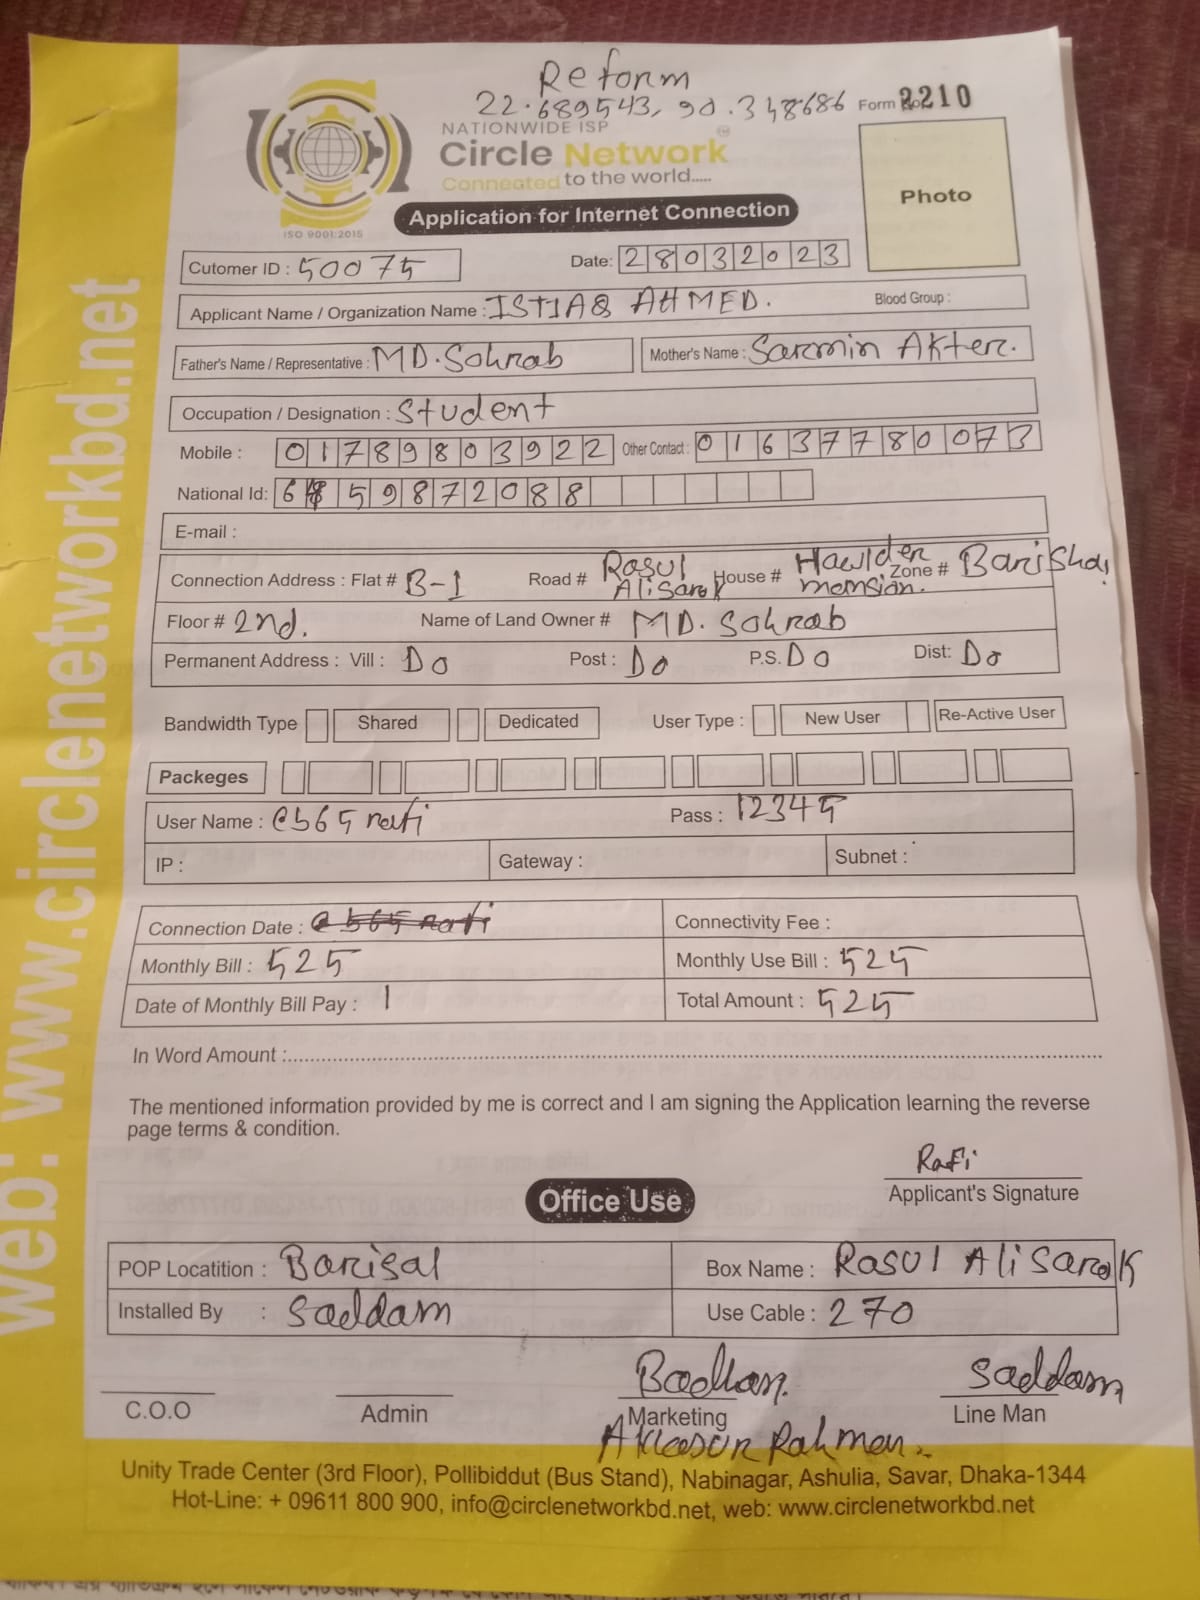 Reform
22.689543, 90.348686 Form No. 2210
NATIONWIDE ISP
Circle Network
Connected to the world.....
ISO 9001:2015
Photo
Application for Internet Connection
Cutomer ID : 50075 Date: 28032023
Applicant Name / Organization Name : ISTIAQ AHMED. Blood Group :
Father's Name / Representative : MD. Sohrab Mother's Name : Sarmin Akter.
Occupation / Designation : Student
Mobile : 01789803922 Other Contact : 01637780073
National Id: 59872088
E-mail :
Connection Address : Flat # B-1 Road # Rasul Alisarok House # Hawlder mansian. Zone # Barishal
Floor # 2nd. Name of Land Owner # MD. Sohrab
Permanent Address : Vill : Do Post : Do P.S. Do Dist: Do
Bandwidth Type Shared Dedicated User Type : New User Re-Active User
Packeges
User Name : @565 rafi Pass : 12345
IP : Gateway : Subnet :
Connection Date : Connectivity Fee :
Monthly Bill : 525 Monthly Use Bill : 525
Date of Monthly Bill Pay : 1 Total Amount : 525
In Word Amount :
The mentioned information provided by me is correct and I am signing the Application learning the reverse
page terms & condition.
Rafi
Applicant's Signature
Office Use
POP Locatition : Barisal Box Name : Rasul Ali Sarak
Installed By : Saddam Use Cable : 270
Badhan. Saddam
C.O.O Admin Marketing Line Man
Rahman.
Unity Trade Center (3rd Floor), Pollibiddut (Bus Stand), Nabinagar, Ashulia, Savar, Dhaka-1344
Hot-Line: + 09611 800 900, info@circlenetworkbd.net, web: www.circlenetworkbd.net
web: www.circlenetworkbd.net